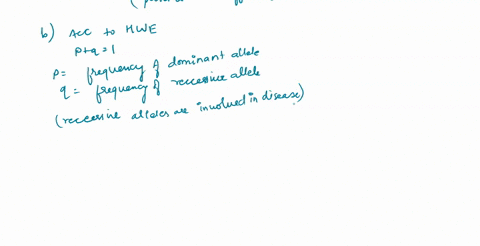 b) Acc to HWE
p+q=1
p= frequency of dominant allele
q= frequency of reccessive allele
(reccessive alleles are involved in disease)